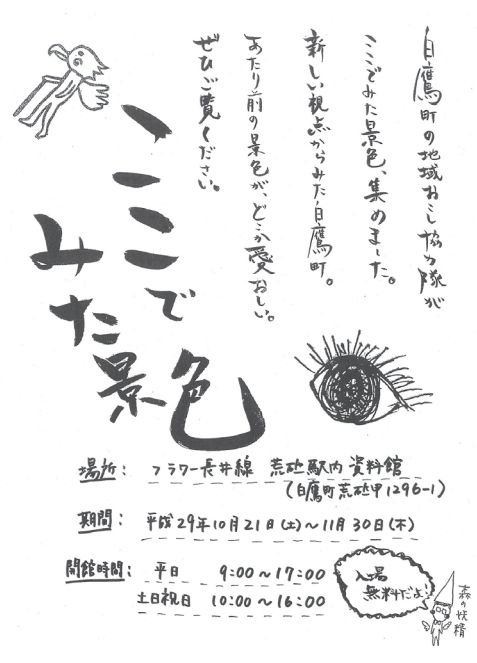 白鷹町の地域おこし協力隊が
ここでみた景色、集めました。
新しい視点からみた白鷹町。
あたり前の景色が、どこか愛おしい。
ぜひご覧ください。
ここで
みた
景色
場所： フラワー長井線 荒砥駅内 資料館
（白鷹町荒砥甲1296-1）
期間： 平成29年10月21日(土)～11月30日(木)
開館時間： 平日 9:00～17:00
土日祝日 10:00～16:00
入場
無料だよ
森の妖精